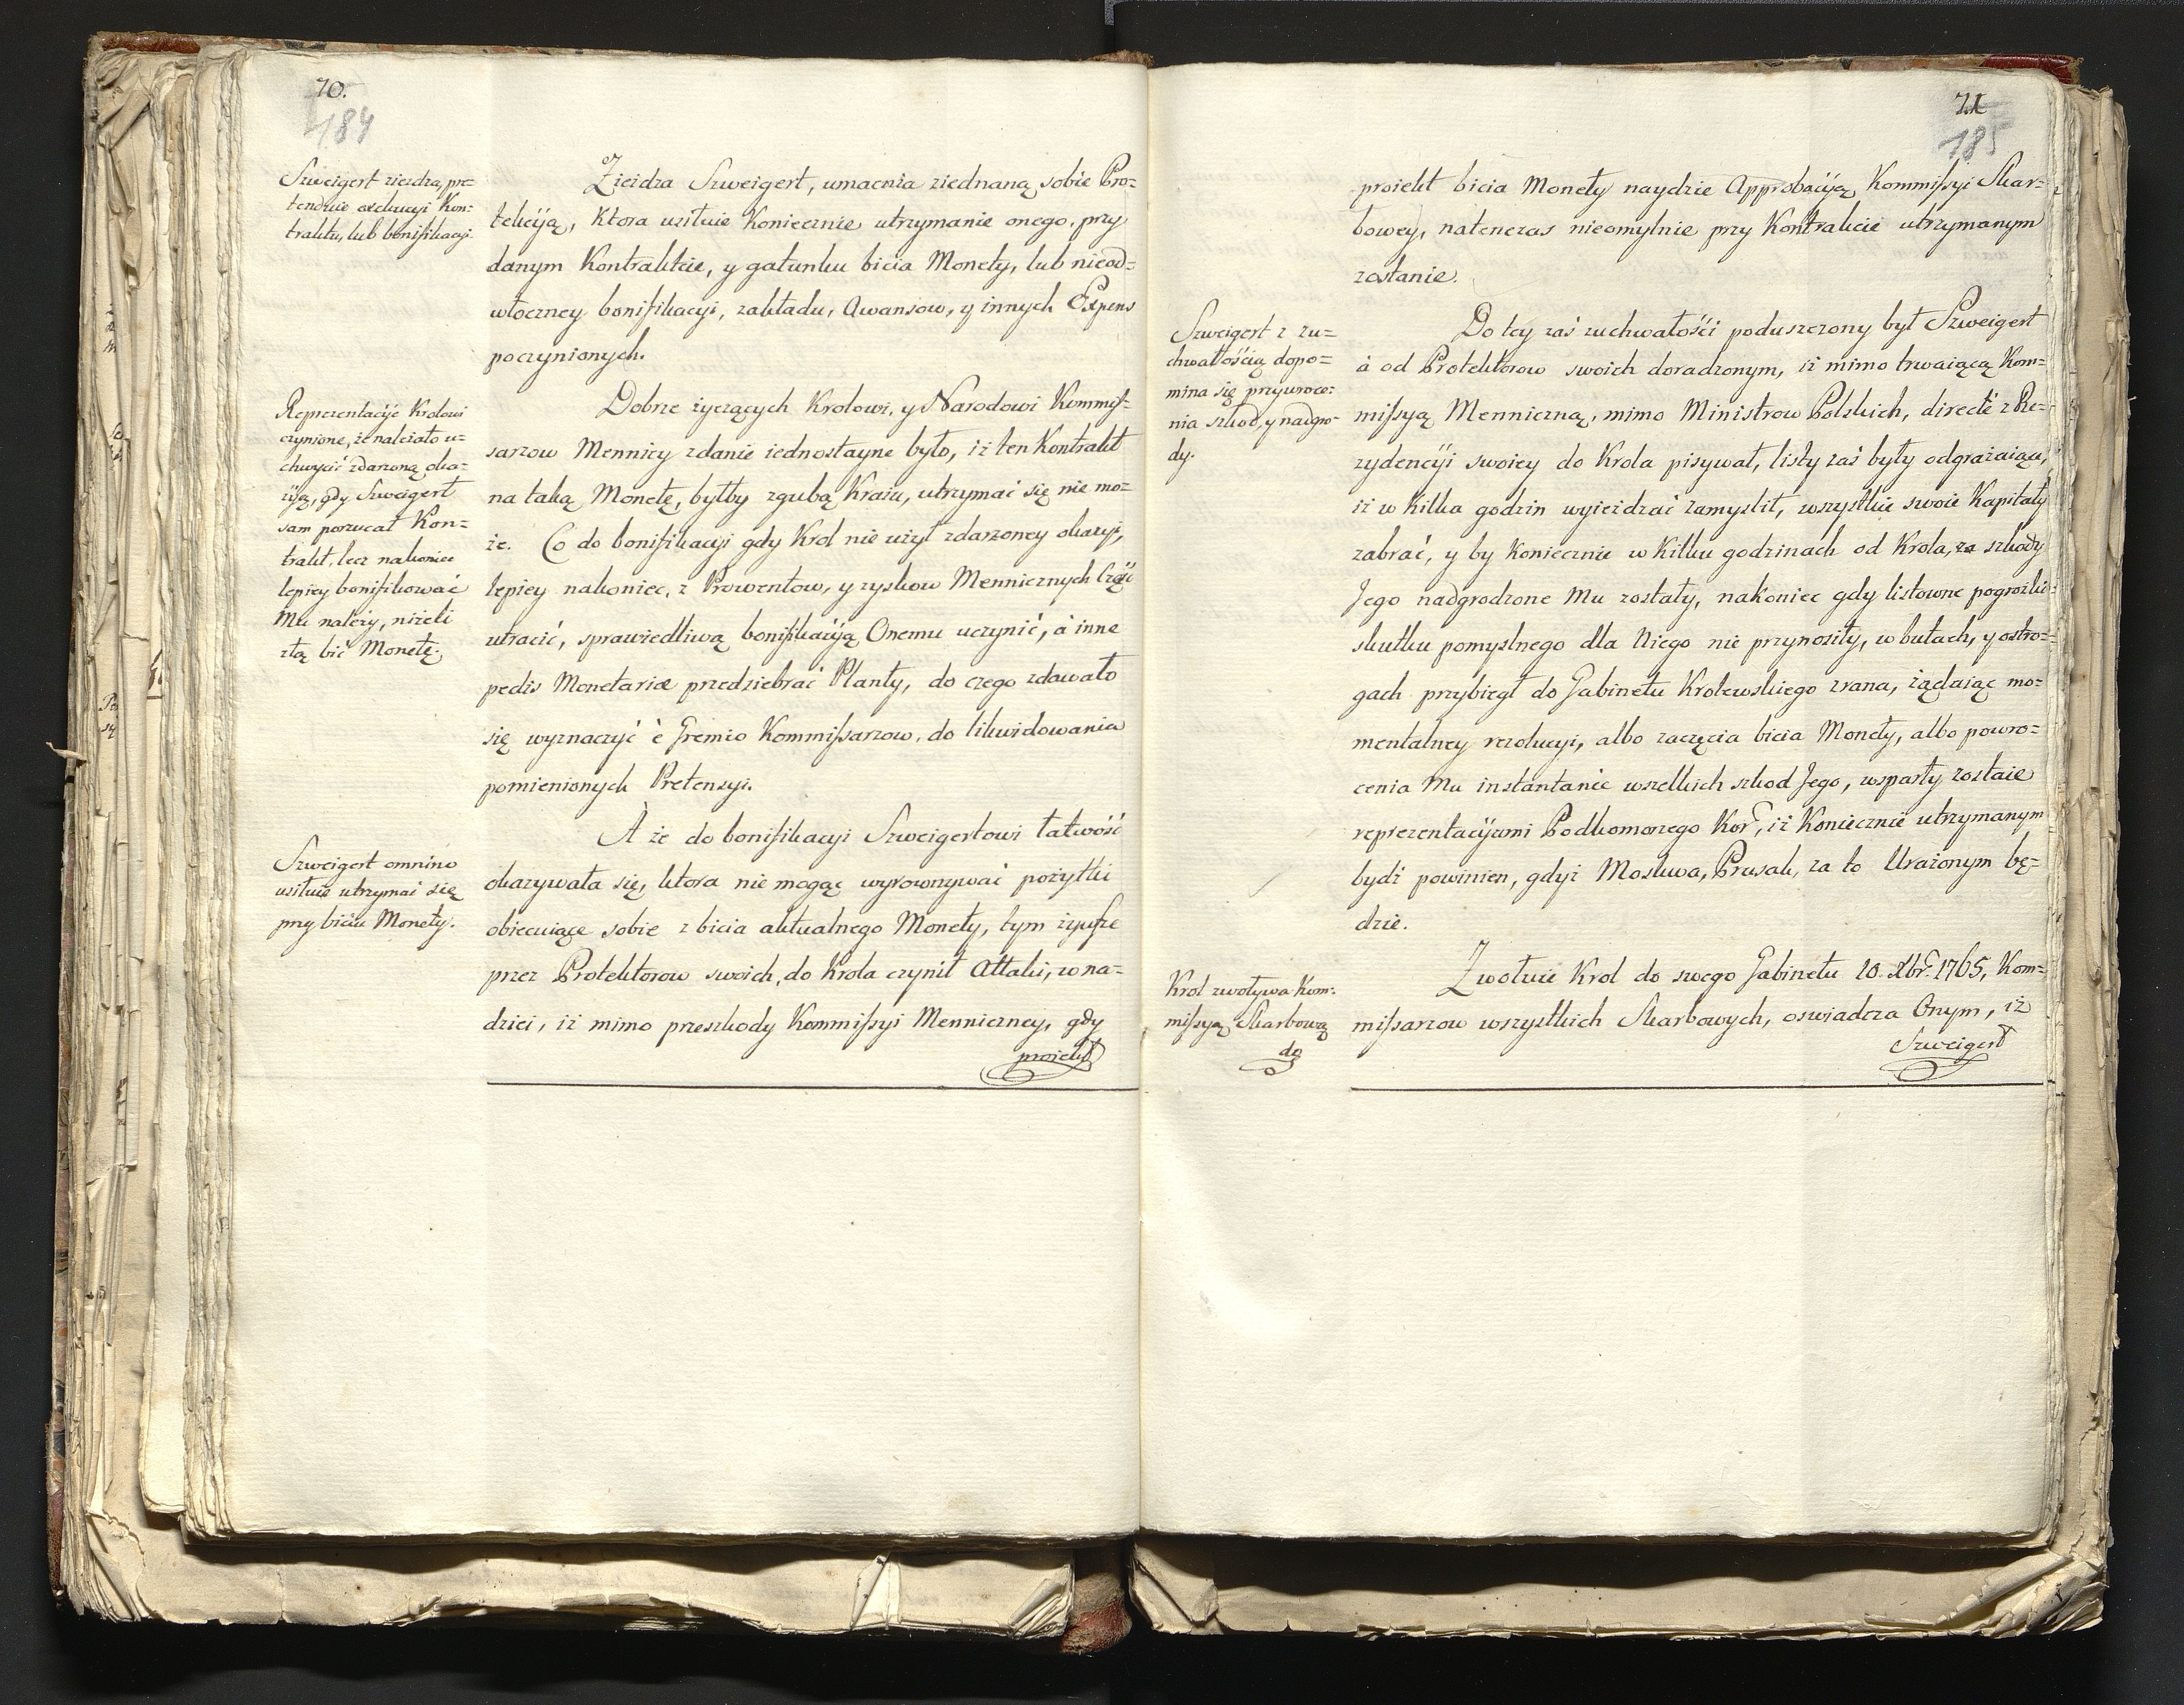 70.
184
Szweigert zieżdza, pre=
tenduie exekucyi Kon=
traktu, lub bonifikacyi.
Zieżdza Szweigert, umacnia ziednaną sobie Pro=
tekcyją, Ktora usiłuie Koniecznie utrzymanie onego, przy
danym Kontrakcie, y gatunku bicia Monety, lub nieod=
włoczney bonifikacyi, zakładu, Awansow, y innych Expens
poczynionych.
Reprezentacyje Krolowi
czynione, że należało u=
chwycić zdarzoną oka=
zyją, gdy Szweigert
sam porzucał Kon=
trakt, lecz nakoniec
lepiey bonifikować
Mu należy, niżeli
złą bić Monetę.
Dobrze życzących Krolowi, y Narodowi Kommiſ=
sarzow Mennicy zdanie iednostayne było, iż ten Kontrakt
na taką Monetę, byłby zgubą Kraiu, utrzymać się nie mo=
że. Co do bonifikacyi gdy Krol nie użył zdarzoney okazyi,
lepiey nakoniec, z Prowentow, y zyskow Mennicznych Część
utracić, sprawiedliwą bonifikacyją Onemu uczynić, á inne
pedis Monetariæ przedziebrać Planty, do czego zdawało
się wyznaczyć è Gremio Kommiſsarzow, do likwidowania
pomienionych Pretensyi.
Szweigert omnino
usiłuie utrzymać się
przy biciu Monety.
À że do bonifikacyi Szweigertowi łatwość
okazywała się, ktora nie mogąc wyrownywać pożytki
obiecuiące sobie z bicia aktualnego Monety, tym żywſze
przez Protektorow swoich, do Krola czynił Attaki, w na=
dziei, iż mimo przeszkody Kommiſsyi Menniczney, gdy
proiekt
71
185
proiekt bicia Monety naydzie Approbacyją, Kommiſsyi Skar=
bowey, natenczas nieomylnie przy Kontrakcie utrzymanym
zostanie.
Szweigert z zu=
chwałością dopo=
mina się przywroce:
nia szkod, y nadgro=
dy.
Do tey zaś zuchwałośći poduszczony był Szweigert
á od Protektorow swoich doradzonym, iż mimo trwaiącą Kom=
miſsyą Menniczną, mimo Ministrow Polskich, directè z Re=
zydencyi swoiey do Krola pisywał, listy zaś były odgrażaiące,
iż w Kilka godzin wyieżdzać zamyslił, wszystkie swoie Kapitały
zabrać, y by Koniecznie w Kilku godzinach od Krola, za szkody
Jego nadgrodzone Mu zostały, nakoniec gdy listowne pogrożki
skutku pomyslnego dla Niego nie przynosiły, w butach, y ostro=
gach przybiegł do Gabinetu Krolewskiego zrana, żądaiąc mo=
mentalney rezolucyi, albo zaczęcia bicia Monety, albo powro=
cenia Mu instantaneè wszelkich szkod Jego, wsparty zostaie
reprezentacyjami Podkomorzego Korᵒ, iż Koniecznie utrzymanym
bydź powinien, gdyż Moskwa, Prusak, za to Urażonym bę=
dzie.
Krol zwoływa Kom:
miſsyą Skarbową
do
Zwołuie Krol do swego Gabinetu 10. Xbrᵃ 1765, Kom=
miſsarzow wszystkich Skarbowych, oswiadcza Onym, iż
Szweigert